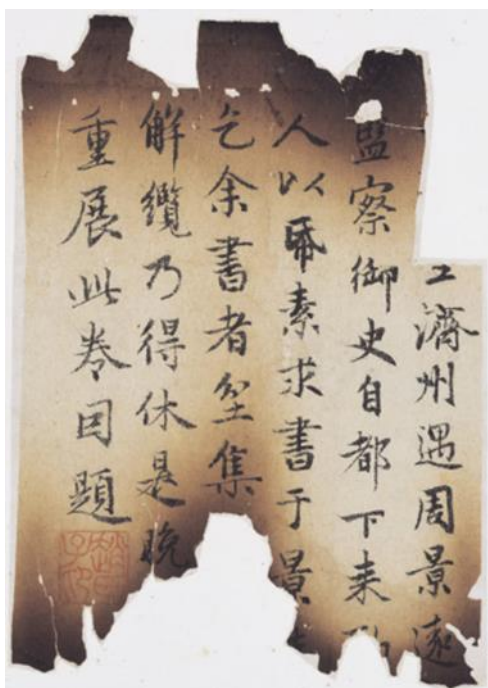 濟州遇周景遠
監察御史自都下来
人以帋素求書于景
乞余書者坌集
解纜乃得休是晚
重展此卷因題